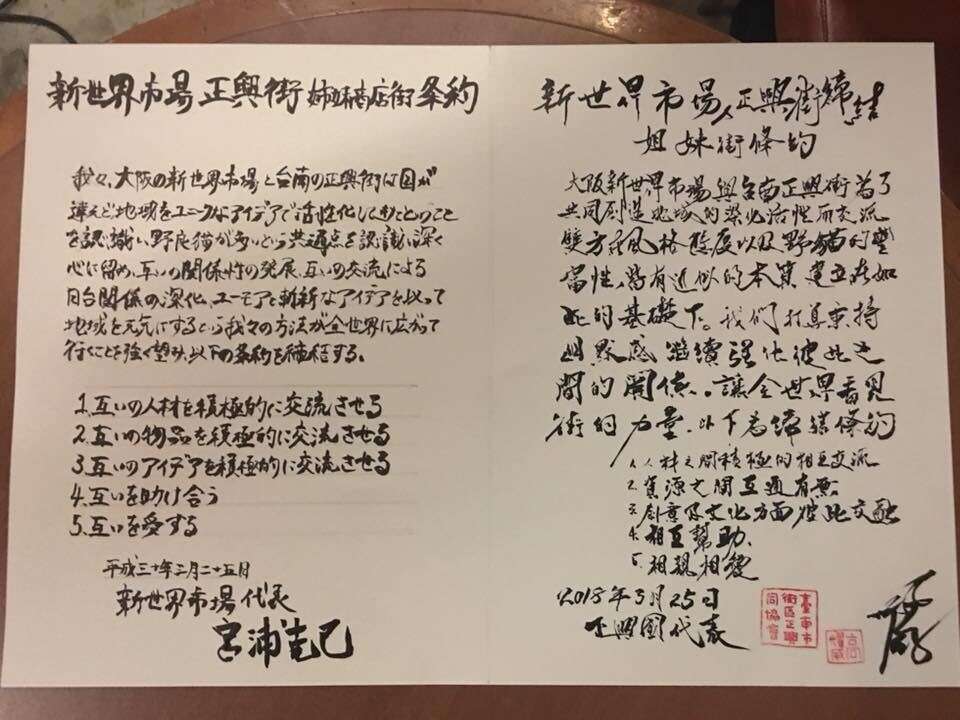 新世界市場 正興街 姉妹商店街 条約
我々、大阪の新世界市場と台南の正興街は国が
違えど地域をユニークなアイデアで活性化していることのこと
を認識し、野良猫が多いという共通点を認識し深く
心に留め、互いの関係性の発展、互いの交流による
日台関係の深化、ユーモアと斬新なアイデアを以って
地域を元気にするという我々の方法が全世界に広がって
行くことを強く望み、以下の条約を締結する。
1.互いの人材を積極的に交流させる
2.互いの物品を積極的に交流させる
3.互いのアイデアを積極的に交流させる
4.互いを助け合う
5.互いを愛する
平成三十年三月二十五日
新世界市場 代表
宮浦
新世界市場、正興街締結
姐妹街條約
大阪新世界市場與台南正興街為了
共同創造地域的深化活性而交流
雙方在風格態度以及野貓的豐
富性,皆有近似的本質 建立在如
此的基礎下。我們打算秉持
幽默感 繼續強化彼此之
間的關係。讓全世界看見
街的力量。以下為締結條約
1.人材之間積極的相互交流
2.資源之間互通有無
3.創意及文化方面彼此交融
4.相互幫助.
5.相親相愛
2018年3月25日
正興國代表
臺南市
街區正興
同協會